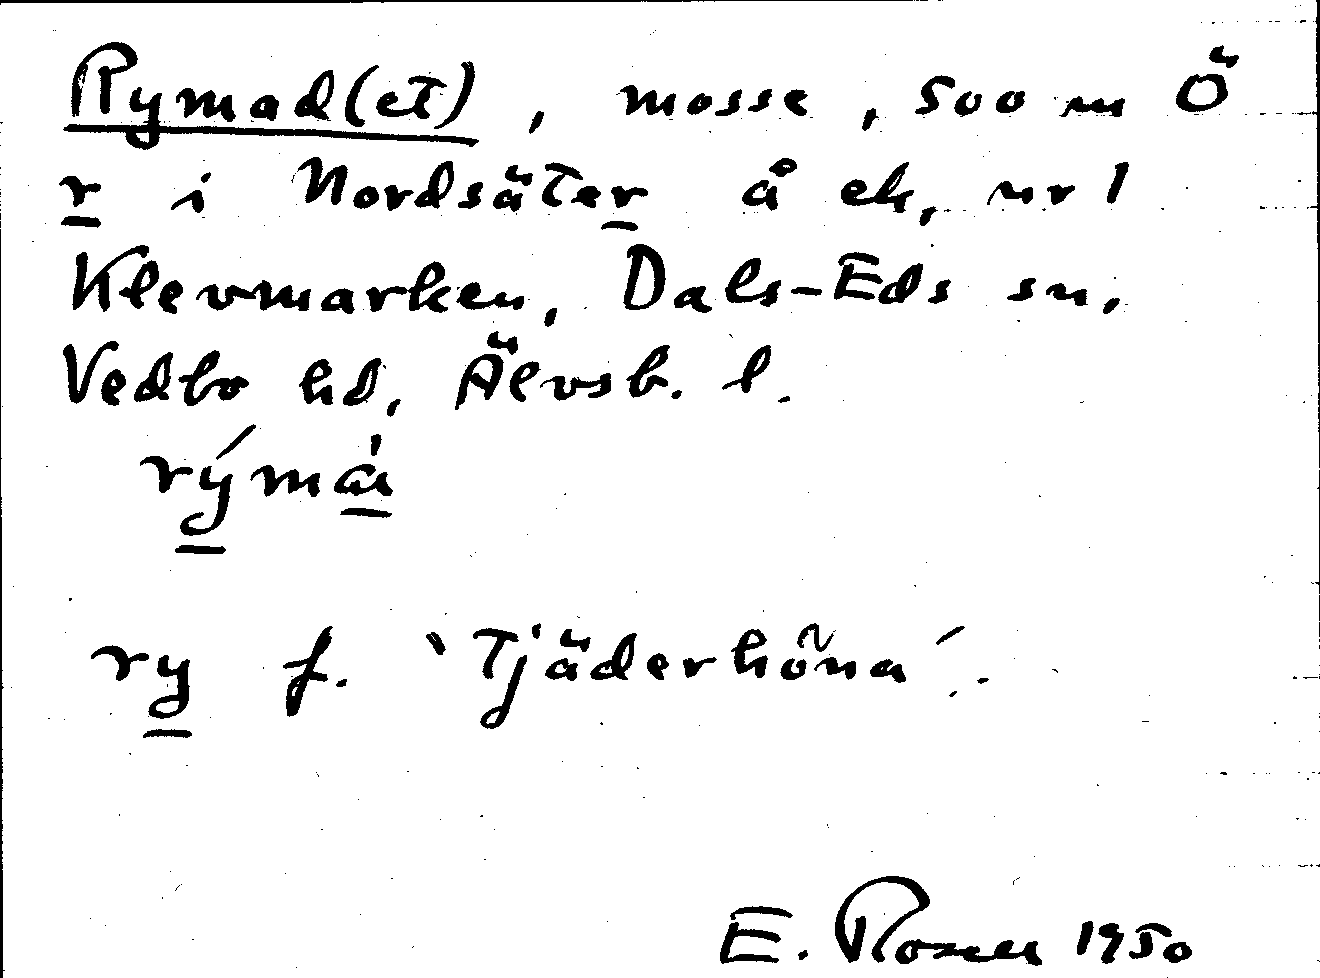 Rymad(et), mosse, 500 m Ö
r i Nordsäter å ek, nr 1
Klevmarken, Dals-Eds sn,
Vedbo hd, Älvsb. l.
rýmá̱
ry f. 'Tjäderhöna'.
E. Rosell 1950